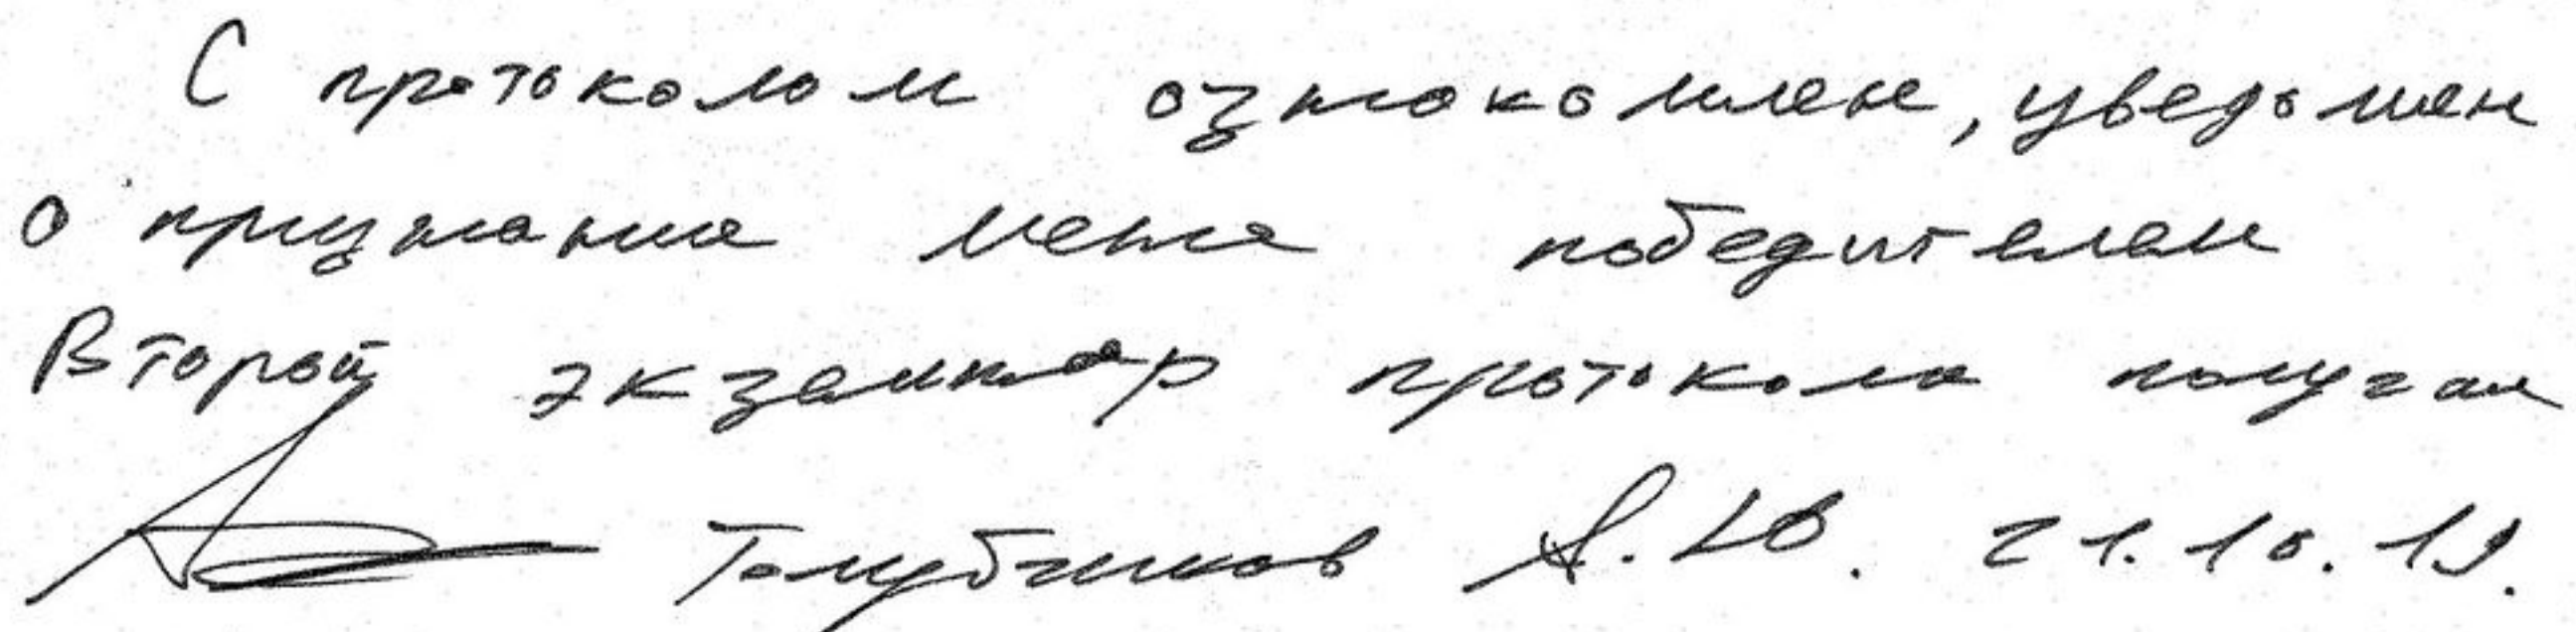 С протоколом ознакомлен, уведомлен
о признание меня победителем
Второй экземпляр протокола получил
Голубчиков А.Ю. 21.10.19.